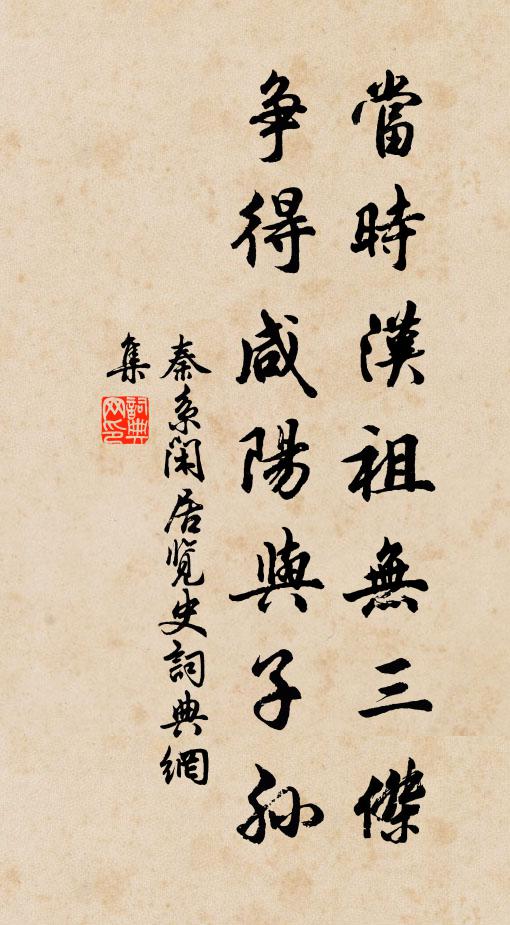 當時漢祖無三傑
争得咸陽與子孫
秦系閑居覽史詞典網
集
詞典
网印